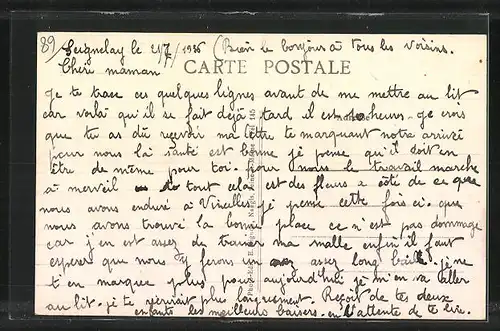 89/ Seignelay le 21/7/1936 (Bien le bonjour à tous les voisins.
Chère maman
CARTE POSTALE
Je te trace ces quelques lignes avant de me mettre au lit
car voilà qu'il se fait déjà tard il est heures. je crois
que tu as dû reçevoir ma lettre te marquant notre arrivé
pour nous la santé est bonne je pense qu'il doit en
être de même pour toi. pour nous le travail marche
à merveil tout celai est des fleurs a côté de ce que
nous avons enduré à je pense cette fois ci que
nous avons trouvé la bonne place ce n'est pas dommage
car j'en est assez de trainer ma malle enfin il faut
esperer que nous y ferons un assez long je ne
t'en marque plus pour aujourd'hui je m'en va aller
au lit. je te récrirait plus longuement. Reçoit de tes deux
enfants les meilleurs baisers. en l'attente de te lire.